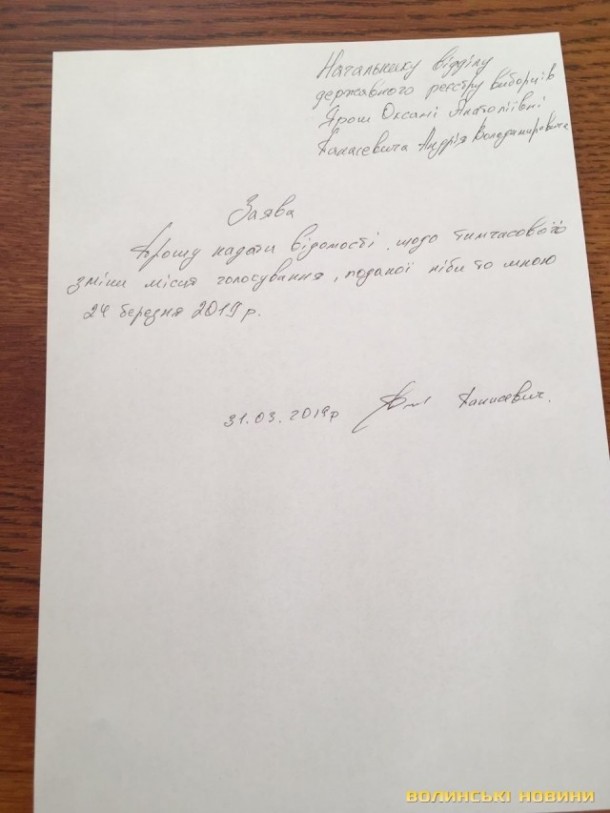 Начальнику відділу
державного реєстру виборців
Ярош Оксані Анатоліївні
Панасевича Андрія Володимировича
Заява
Прошу надати відомості щодо тимчасової
зміни місця голосування, поданої нібито мною
24 березня 2019 р.
31.03.2019р Панасевич.
ВОЛИНСЬКІ НОВИНИ